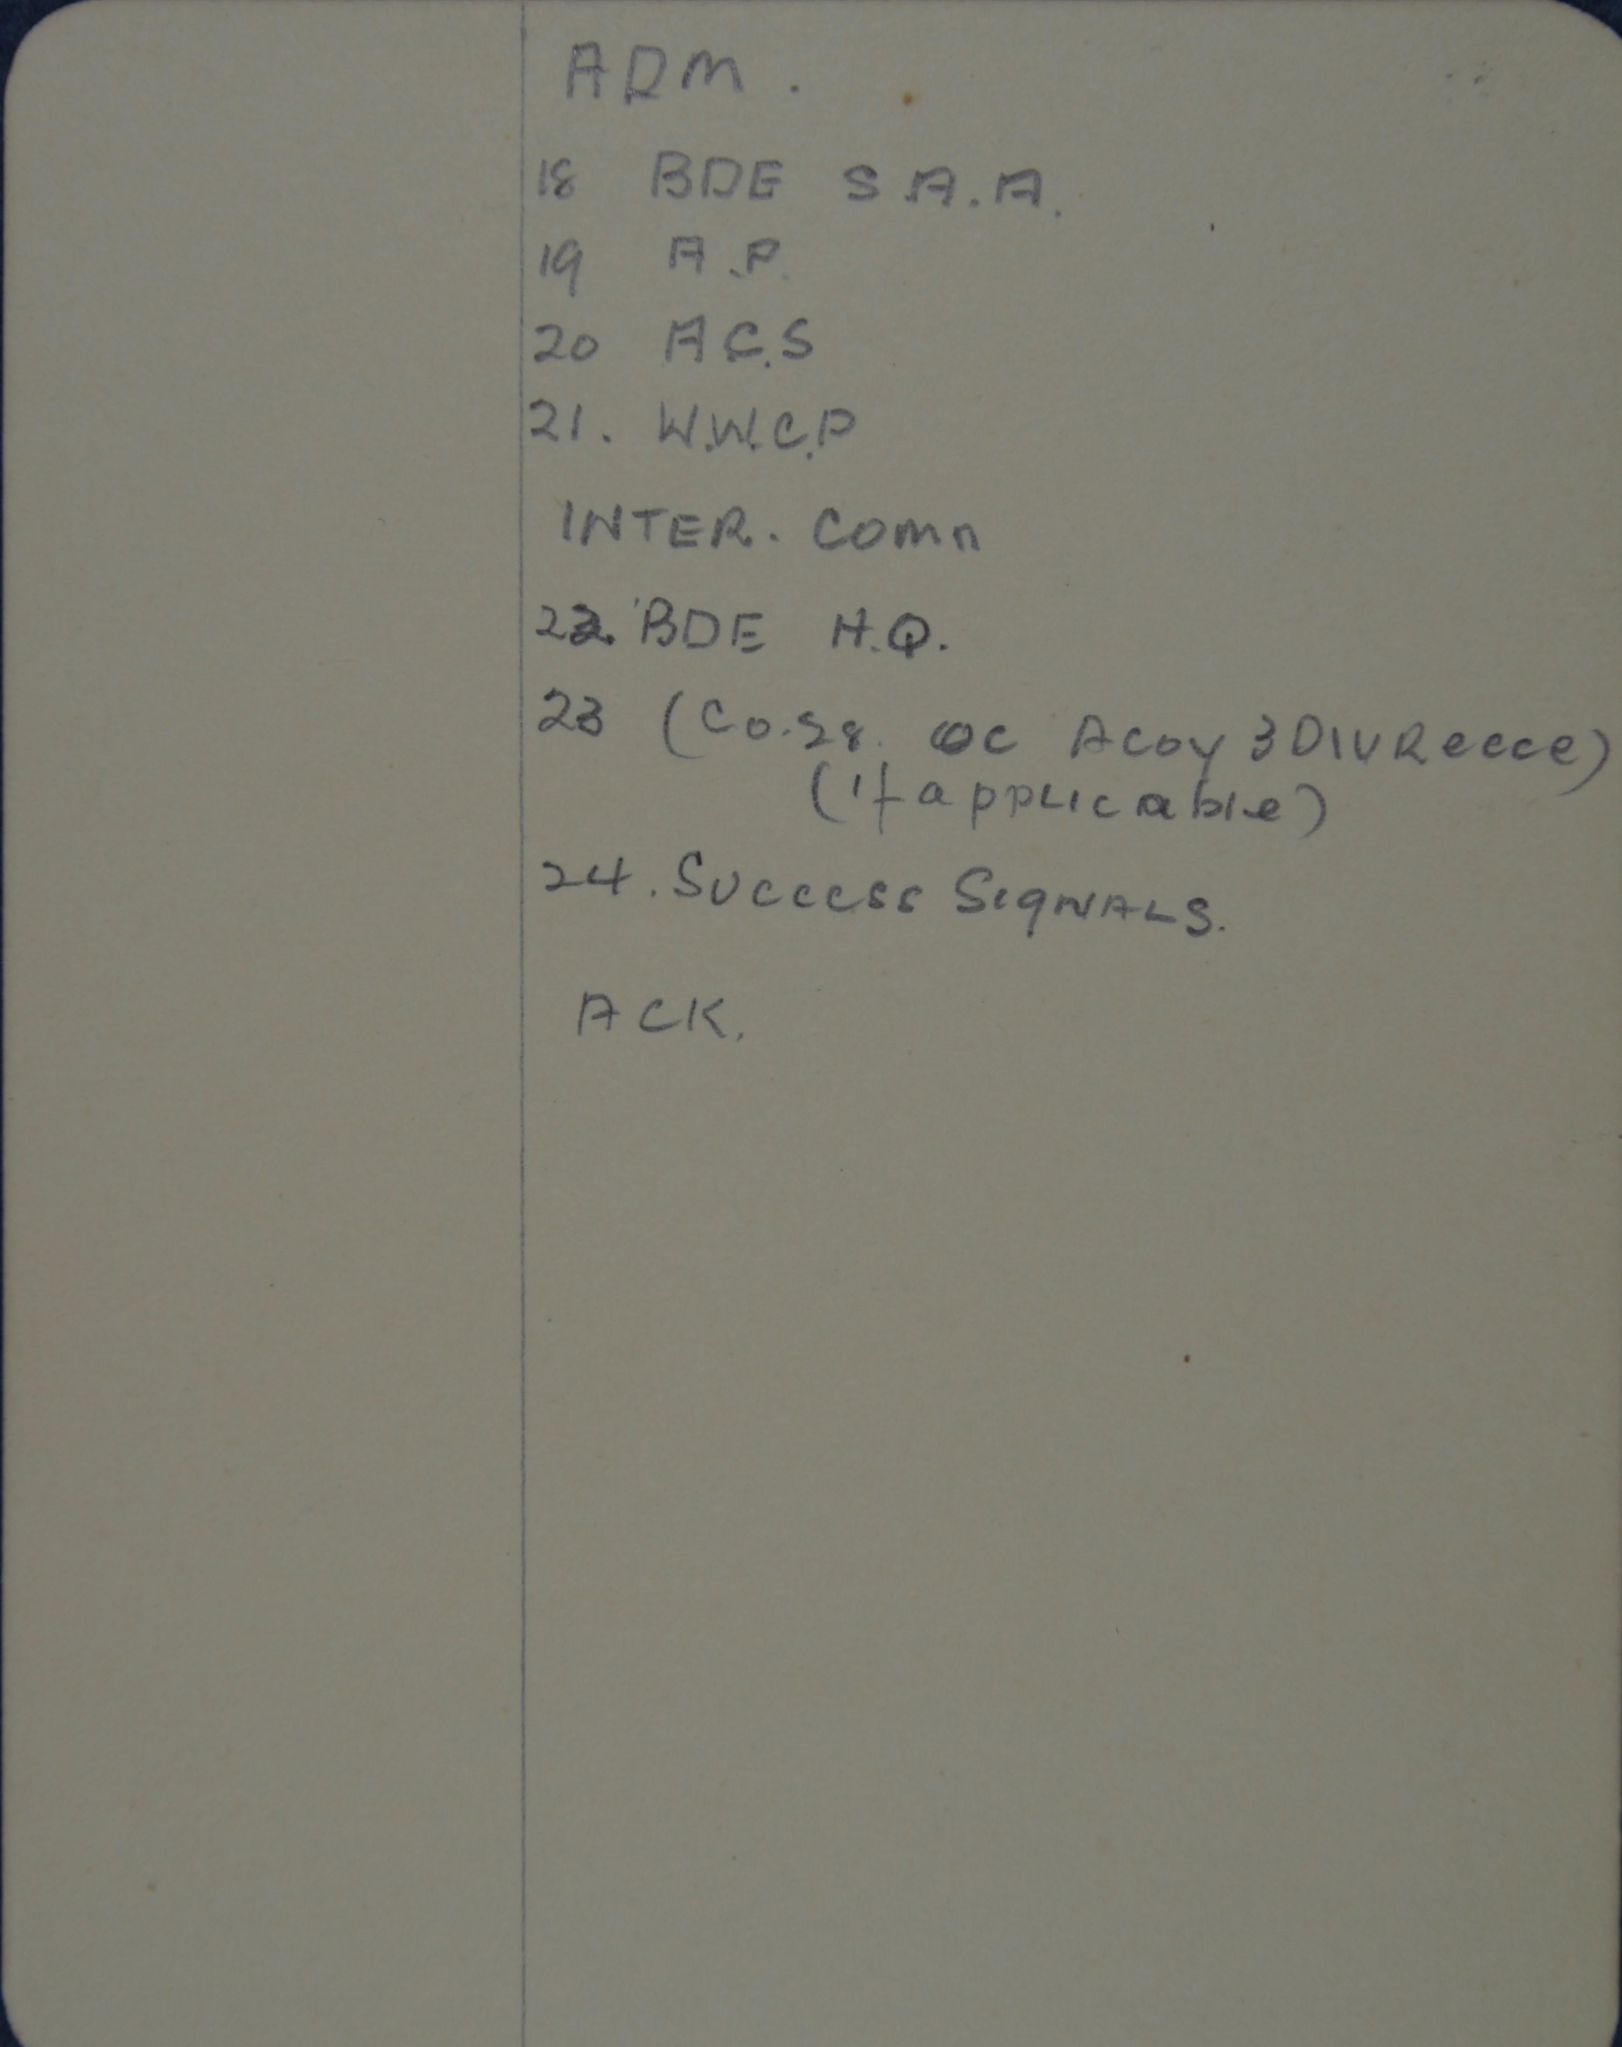 ADM.
18 BDE S.A.A.
19 A.P.
20 A.C.S
21. W.W.C.P
INTER. COMn
22. BDE H.Q.
23 (Co. OC A Coy 3 DIV Recce)
(if applicable)
24. Success SIGNALS.
ACK.